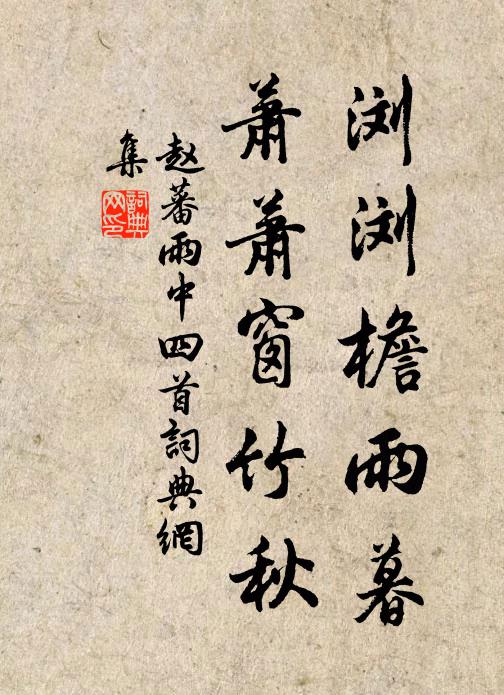 浏浏檐雨暮
萧萧窗竹秋
赵蕃雨中四首詞典網
集
詞典
网印